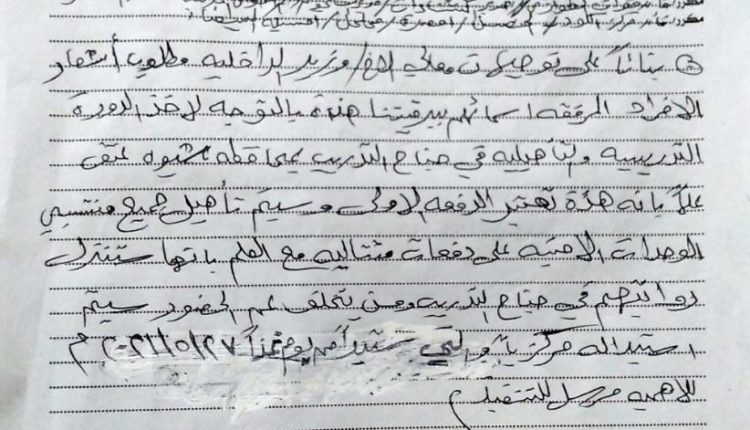 ② بنائاً على توجيهات معالي الاخ/ وزير الداخليه مطلوب أشعار
الافراد المرفقه اسمائهم ببرقيتنا هذة بالتوجه لاخذ الدورة
التدريبيه والتأهيليه في جناح التدريب بمحافظه شبوه عتق
علماً بانه هذة تعتبر الدفعه الاولى وسيتم تأهيل جميع منتسبي
الوحدات الامنيه على دفعات متتاليه مع العلم بانها ستنزل
رواتبهم في جناح التدريب ومن يتخلف عن الحضور سيتم
استبداله مركزياً والتي ستبدأ من يوم غداً ٢٠٢١/٥/٢٧م
للاهميه مرسل للتنفيذ م